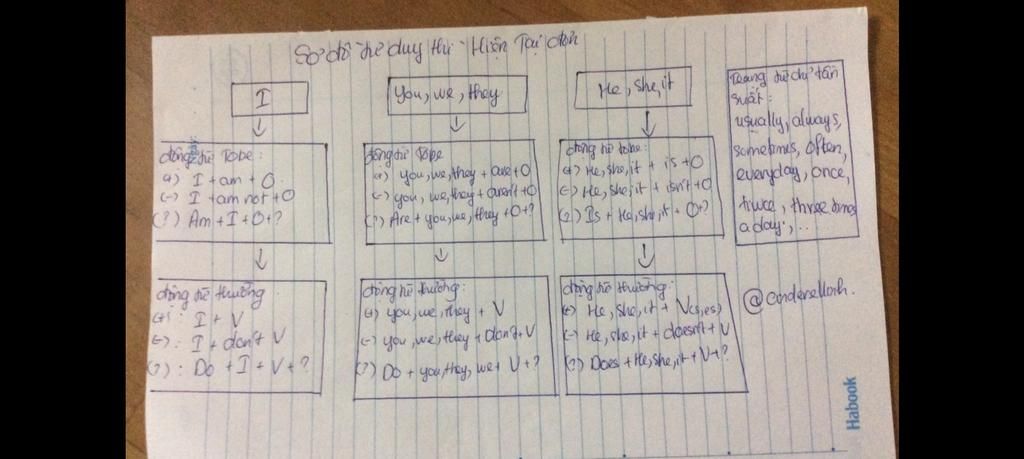 Sơ đồ tư duy thì Hiện Tại đơn
I
động từ Tobe:
(+) I + am + O
(-) I + am not + O
(?) Am + I + O + ?
động từ thường
(+): I + V
(-): I + don't V
(?): Do + I + V + ?
You, we, they
động từ Tobe
(+) you, we, they + are + O
(-) you, we, they + aren't + O
(?) Are + you, we, they + O + ?
động từ thường:
(+) you, we, they + V
(-) you, we, they + don't + V
(?) Do + you, they, we + V + ?
He, she, it
động từ tobe:
(+) He, she, it + is + O
(-) He, she, it + isn't + O
(?) Is + He, she, it + O + ?
động từ thường:
(+) He, she, it + V(s, es)
(-) He, she, it + doesn't + V
(?) Does + He, she, it + V + ?
Trạng từ chỉ tần
suất:
usually, always,
sometimes, often,
everyday, once,
twice, three times
a day, ...
Habook